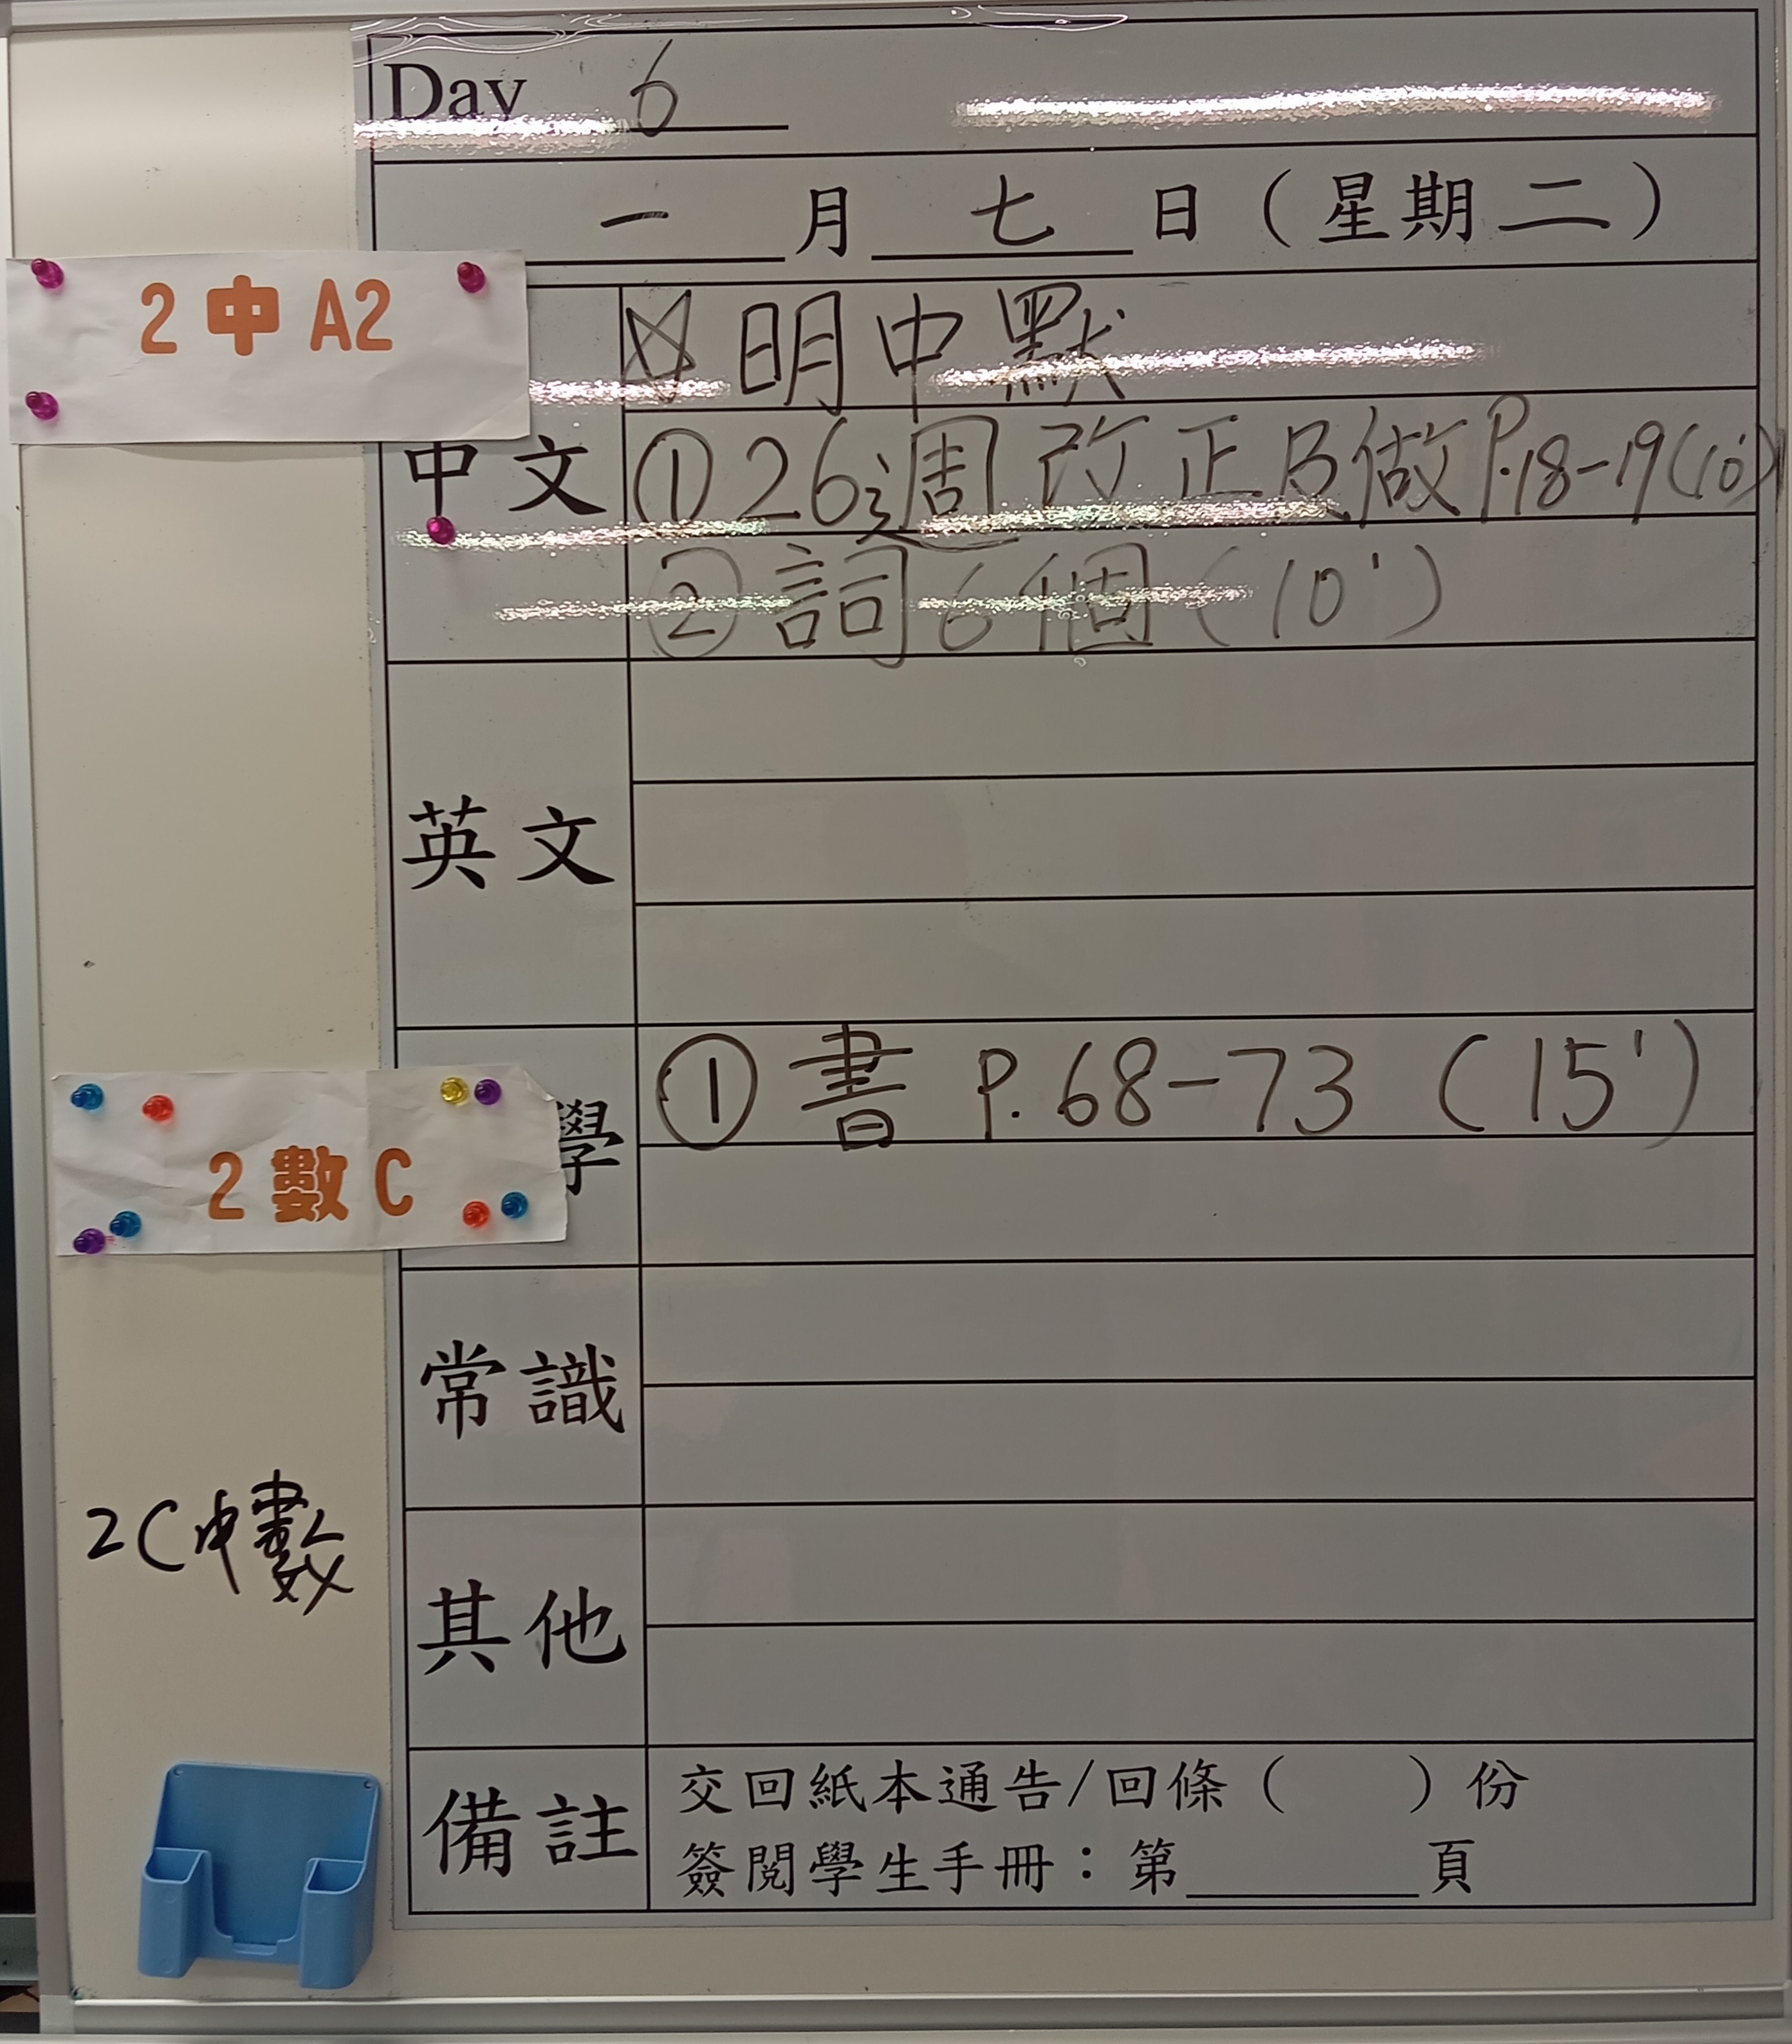 Day 6
一 月 七 日（星期二）
2 中 A2
明中默
中文
① 26週改正及做P.18-19(10')
② 詞6個(10')
英文
學
① 書 P.68-73 (15')
2 數 C
常識
2C中數
其他
備註
交回紙本通告/回條（ ）份
簽閱學生手冊：第____頁